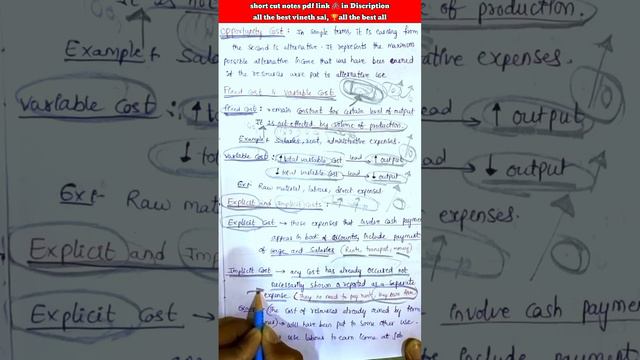 short cut notes pdf link in Discription
all the best vineth sai, all the best all
Opportunity Cost : In simple terms it is earning from
the second is alternative. It represents the maximum
possible alternative income that was have been earned
if the resources were put to alternative use
Fixed cost & Variable Cost
Fixed cost : remain constant for certain level of output
It is not effected by volume of production.
Example : Salaries, rent, administrative expenses.
Variable Cost : ↑ total variable cost lead → ↑ output
↓ total variable cost lead → ↓ output
Ex:- Raw material, labour, direct expenses
Explicit and Implicit costs :
Explicit Cost → those expenses that involve cash payment
appears in book of accounts, include payment
of wage and Salaries
Implicit Cost → any cost has already occured not
necessarily shown or reported as a separate
expense. (They no need to pay rent,
the cost of resources already owned by
will have been put to some other use.
use labour to earn income at job
of production.
Example : Salar
ative expenses.
Variable Cost : ↑ to
ead → ↑ output
↓ tot
ad → ↓ output
Ex:- Raw mat
xpenses.
Explicit and I
Explicit Cost
involve cash paymen